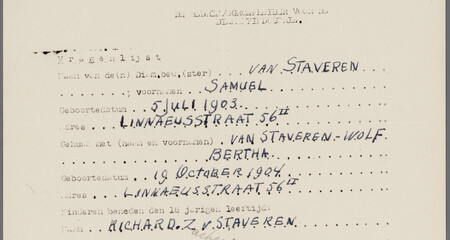 Vragenlijst
Naam van de(n) Dien.bew.(ster) VAN STAVEREN
; voornamen SAMUEL
Geboortedatum 5 JULI 1903.
Adres LINNAEUSSTRAAT 56 II
Gehuwd met (naam en voornamen) VAN STAVEREN-WOLF.
BERTHA.
Geboortedatum 19 OCTOBER 1904.
Adres LINNAEUSSTRAAT 56 II
Kinderen beneden den 16 jarigen leeftijd:
Naam RICHARD. Z. v. STAVEREN.